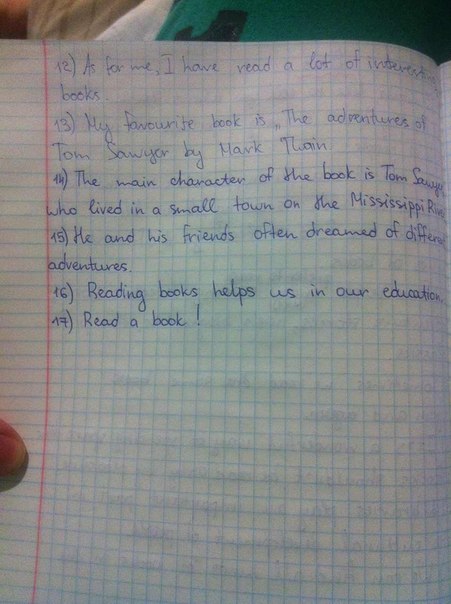 12) As for me, I have read a lot of interesting
books.
13) My favourite book is „The adventures of
Tom Sawyer by Mark Thain
14) The main character of the book is Tom Sawye
who lived in a small town on the Mississippi Rive
15) He and his friends often dreamed of differen
adventures.
16) Reading books helps us in our education.
17) Read a book!